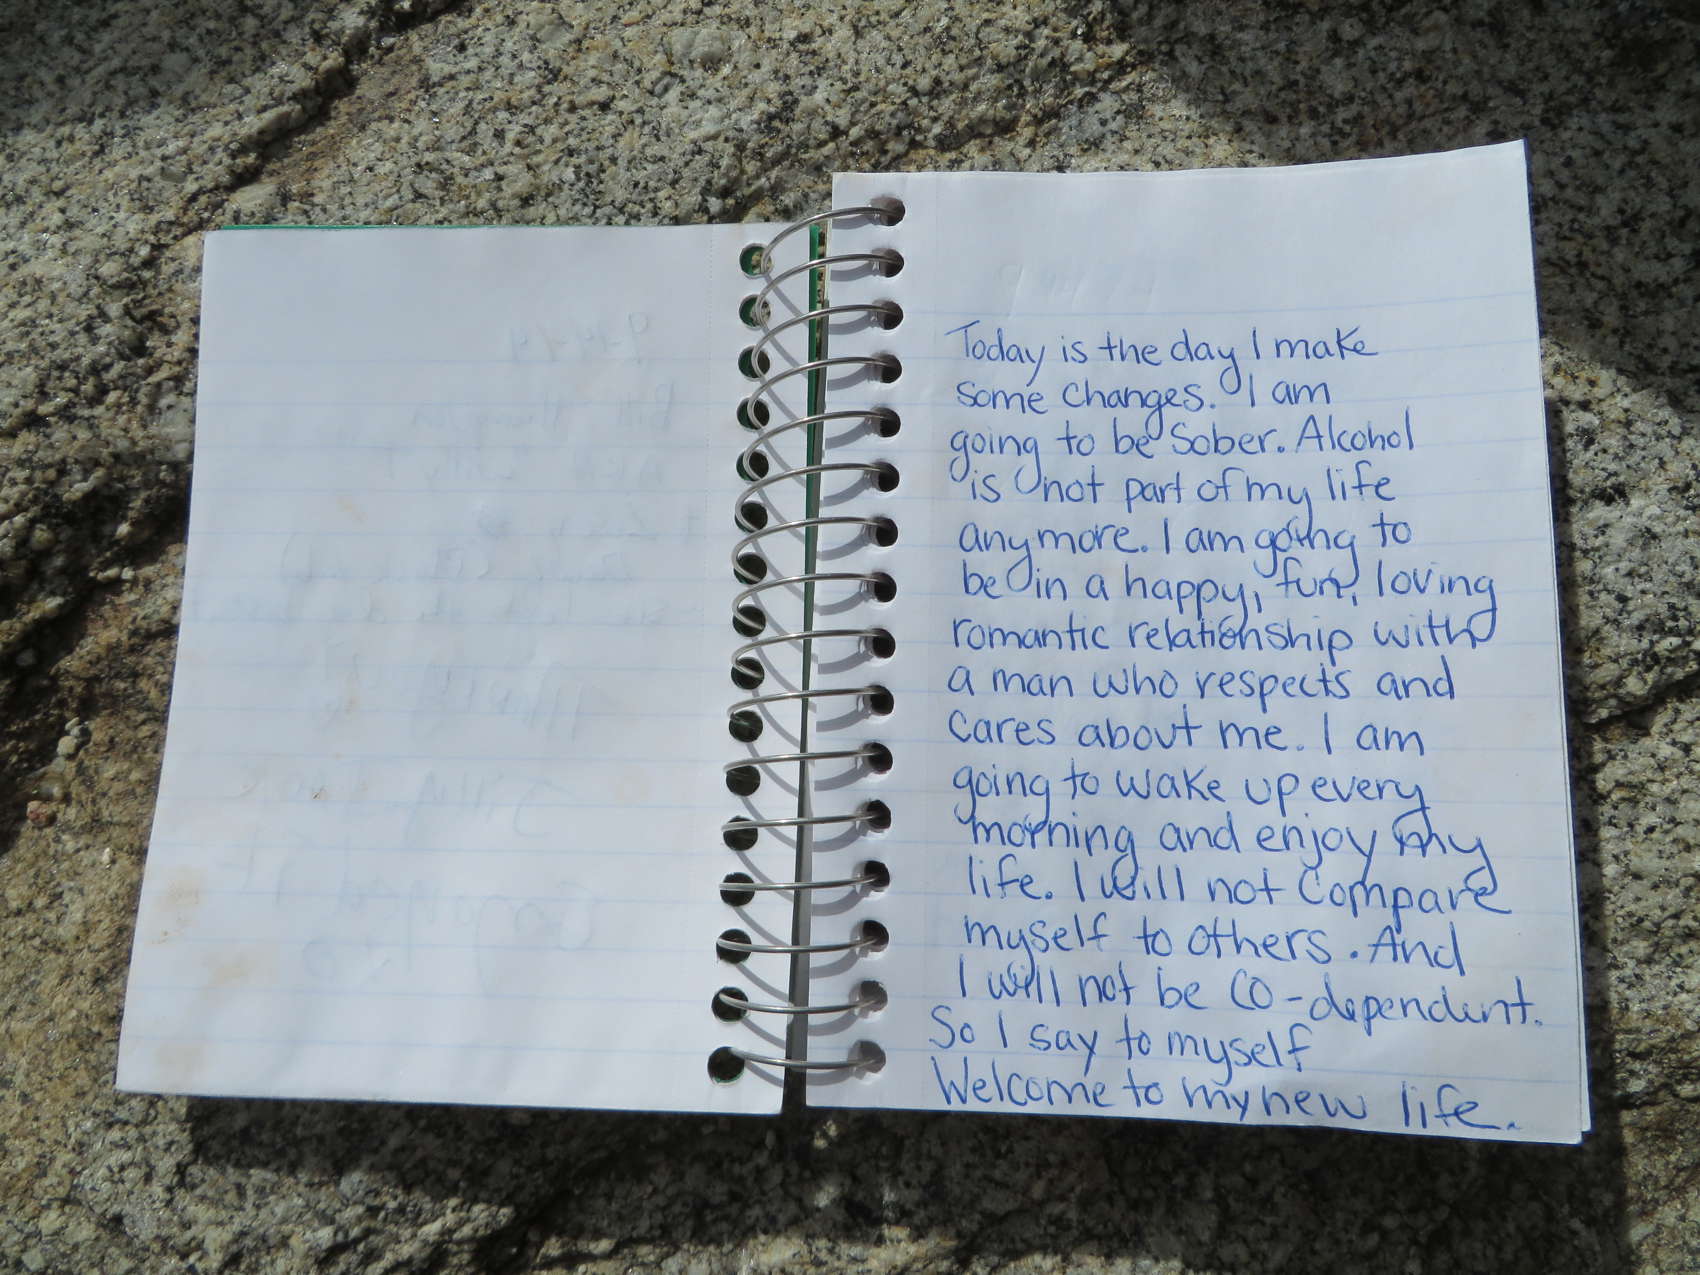 Today is the day I make
some changes. I am
going to be sober. Alcohol
is not part of my life
anymore. I am going to
be in a happy, fun, loving
romantic relationship with
a man who respects and
cares about me. I am
going to wake up every
morning and enjoy my
life. I will not compare
myself to others. And
I will not be co-dependent.
So I say to myself
Welcome to my new life.